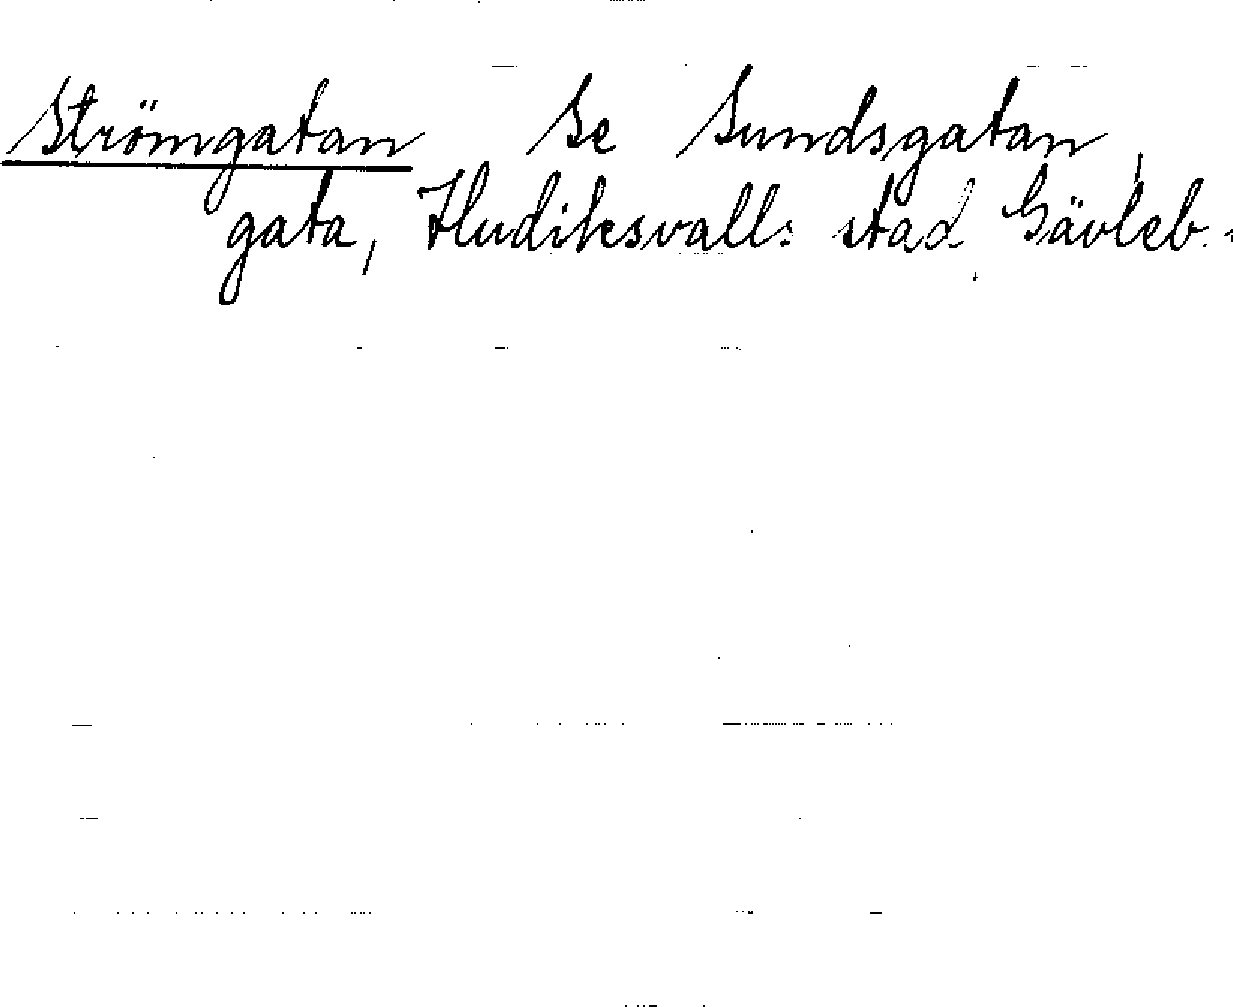 Strömgatan Se Sundsgatan,
gata, Hudiksvalls stad Gävleb.